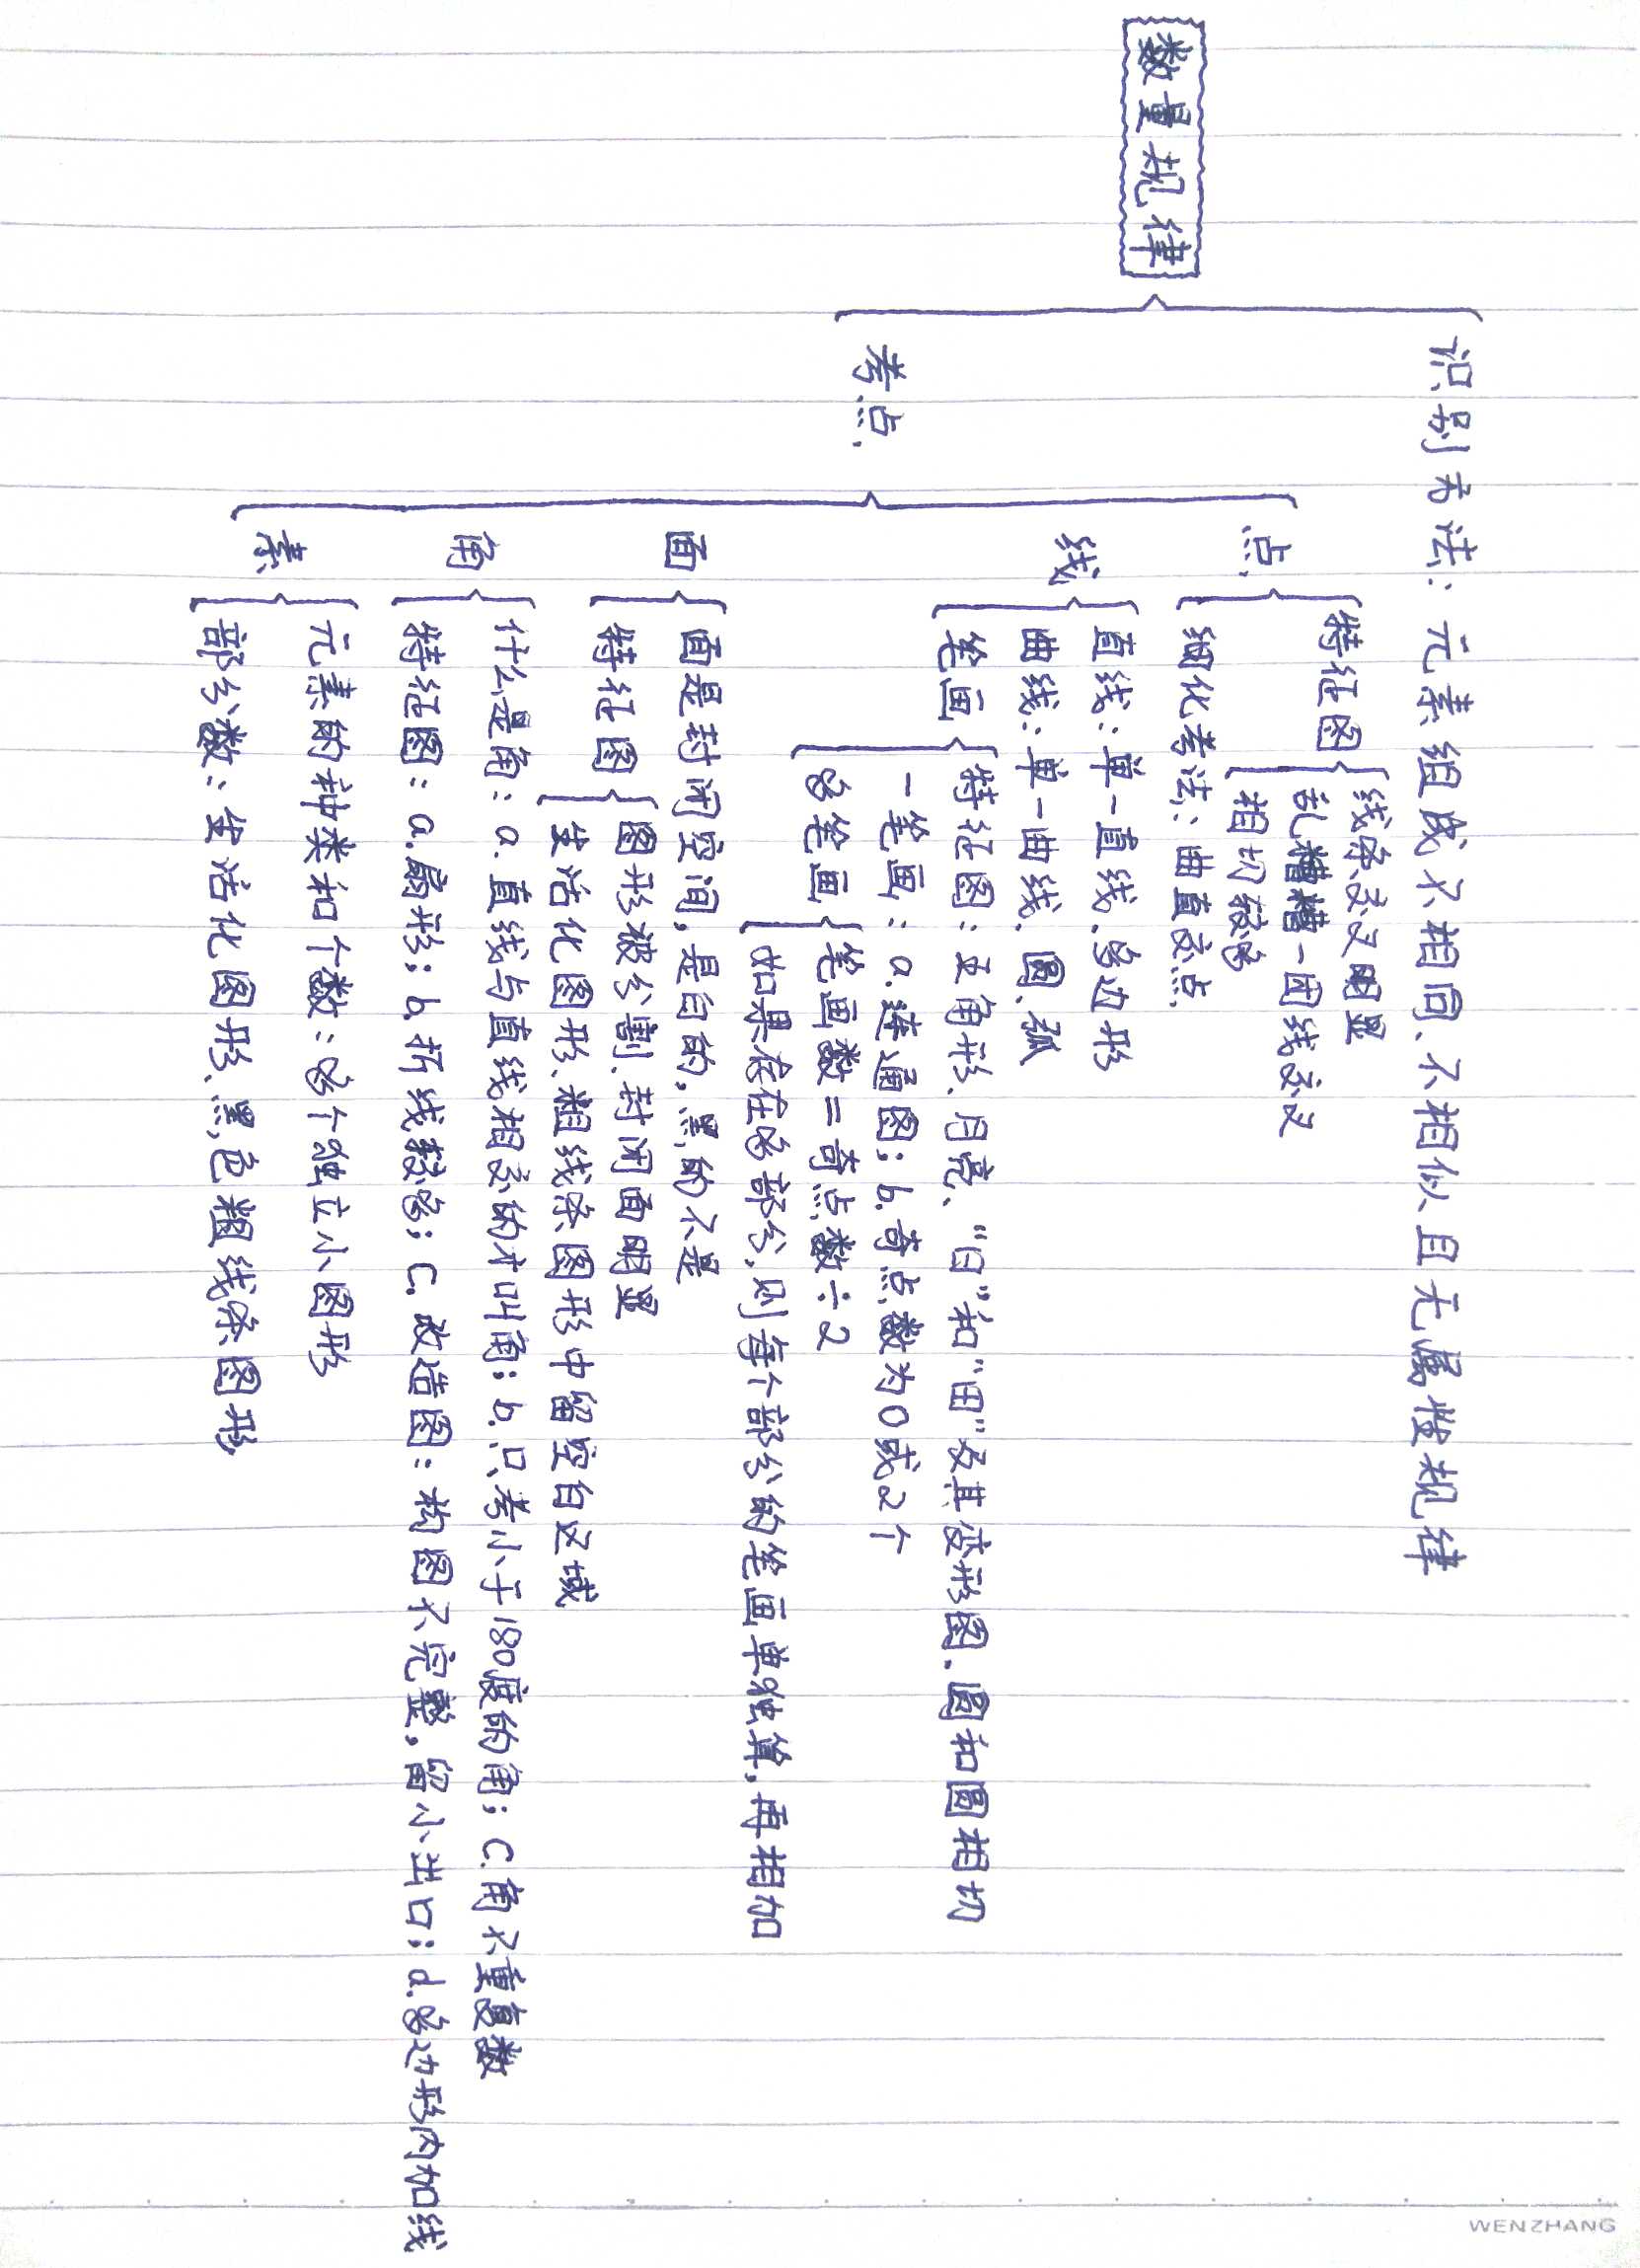 数量规律
识别方法：元素组成不相同、不相似且无属性规律
考点
点
特征图
线条交叉明显
乱糟糟一团线交叉
相切较多
细化考法：曲直交点
线
直线：单一直线、多边形
曲线：单一曲线、圆、弧
笔画
特征图：五角形、月亮、“日”和“田”及其变形图、圆和圆相切
一笔画：a.连通图；b.奇点数为0或2个
多笔画
笔画数＝奇点数÷2
如果存在多部分，则每个部分的笔画单独算，再相加
面
面是封闭空间，是白的，黑的不是
特征图
图形被分割、封闭面明显
生活化图形、粗线条图形中留空白区域
角
什么是角：a.直线与直线相交的才叫角；b.只考小于180度的角；c.角不重复数
特征图：a.扇形；b.折线较多；c.改造图：构图不完整，留小出口；d.多边形内加线
素
元素的种类和个数：多个独立小图形
部分数：生活化图形、黑色粗线条图形
WENZHANG